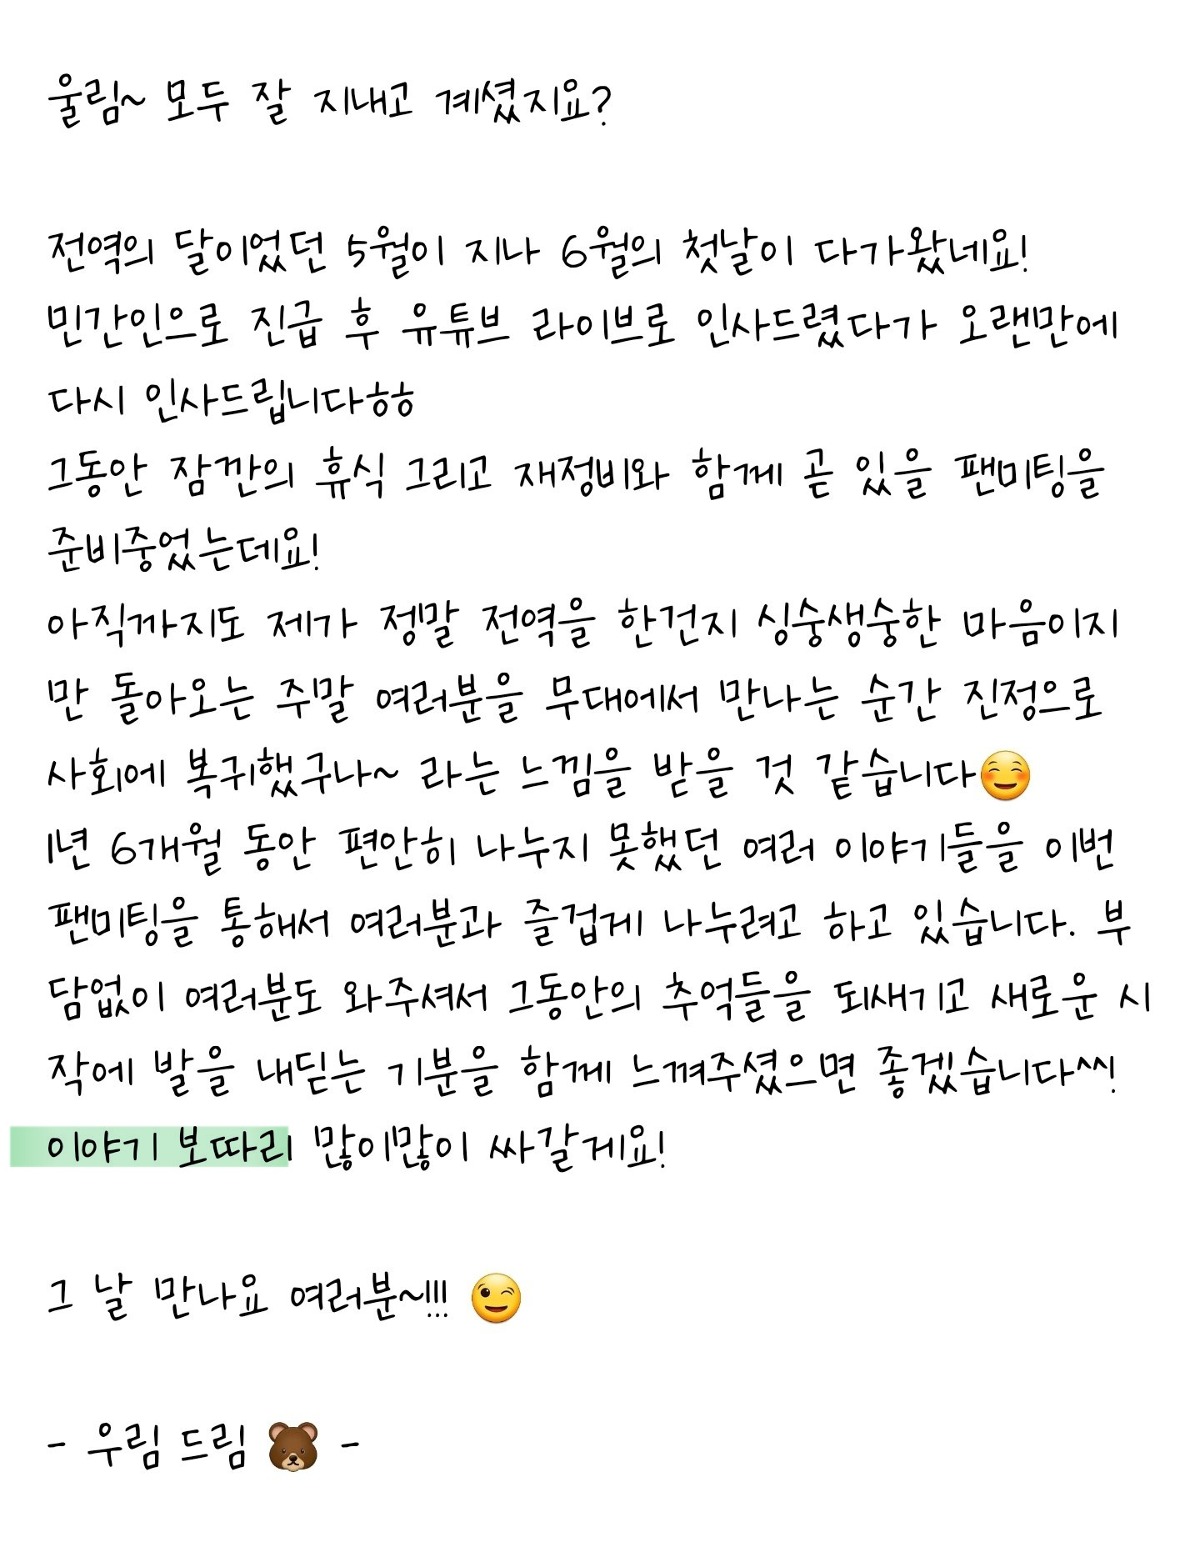 울림~ 모두 잘 지내고 계셨지요?
전역의 달이었던 5월이 지나 6월의 첫날이 다가왔네요!
민간인으로 진급 후 유튜브 라이브로 인사드렸다가 오랜만에
다시 인사드립니다ㅎㅎ
그동안 잠깐의 휴식 그리고 재정비와 함께 곧 있을 팬미팅을
준비중었는데요!
아직까지도 제가 정말 전역을 한건지 싱숭생숭한 마음이지
만 돌아오는 주말 여러분을 무대에서 만나는 순간 진정으로
사회에 복귀했구나~ 라는 느낌을 받을 것 같습니다😊
1년 6개월 동안 편안히 나누지 못했던 여러 이야기들을 이번
팬미팅을 통해서 여러분과 즐겁게 나누려고 하고 있습니다. 부
담없이 여러분도 와주셔서 그동안의 추억들을 되새기고 새로운 시
작에 발을 내딛는 기분을 함께 느껴주셨으면 좋겠습니다^^!
이야기 보따리 많이많이 싸갈게요!
그 날 만나요 여러분~!!! 😉
- 우림 드림 🐻 -